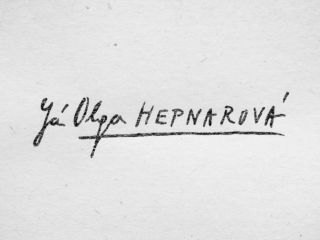 Já Olga HEPNAROVÁ